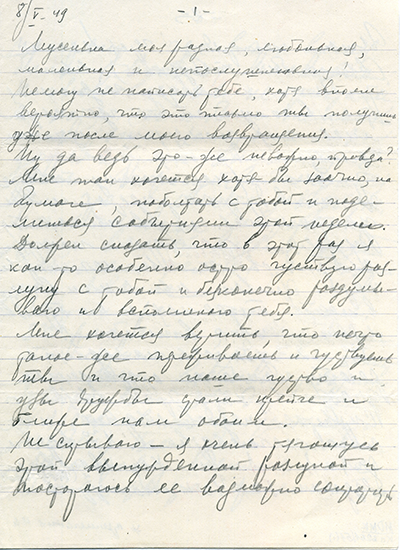 8/V-49 -1-
Мусенька моя родная, любимая,
маленькая и непослушная!
Не могу не написать тебе, хотя вполне
вероятно, что это письмо ты получишь
уже после моего возвращения.
Ну да ведь это-же неважно, правда?
Мне так хочется хотя бы заочно, на
бумаге, поболтать с тобой и поде-
литься событиями этой недели.
Должен сказать, что в этот раз я
как-то особенно остро чувствую раз-
луку с тобой и бесконечно
и вспоминаю тебя.
Мне хочется верить, что нечто
такое-же переживаешь и чувствуешь
ты и что наше чувство и
узы дружбы стали крепче и
ближе нам обоим.
Не скрываю - я очень тягощусь
этой вынужденной разлукой и
постараюсь ее возможно сократить